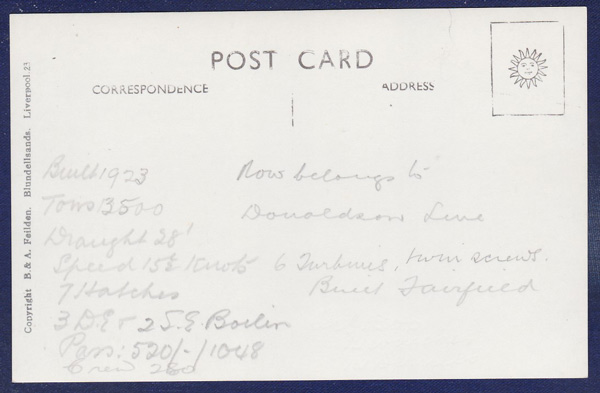 POST CARD
CORRESPONDENCE
ADDRESS
Copyright B. & A. Feilden. Blundellsands. Liverpool.23
Built 1923
Tons 13500
Draught 28'
Speed 15½ Knots
7 Hatches
3 D.E & 2 S.E. Boilers
Pass: 520/-/1048
Crew 260
Now belongs to
Donaldson Line
6 Turbines, twin screws.
Built Fairfield